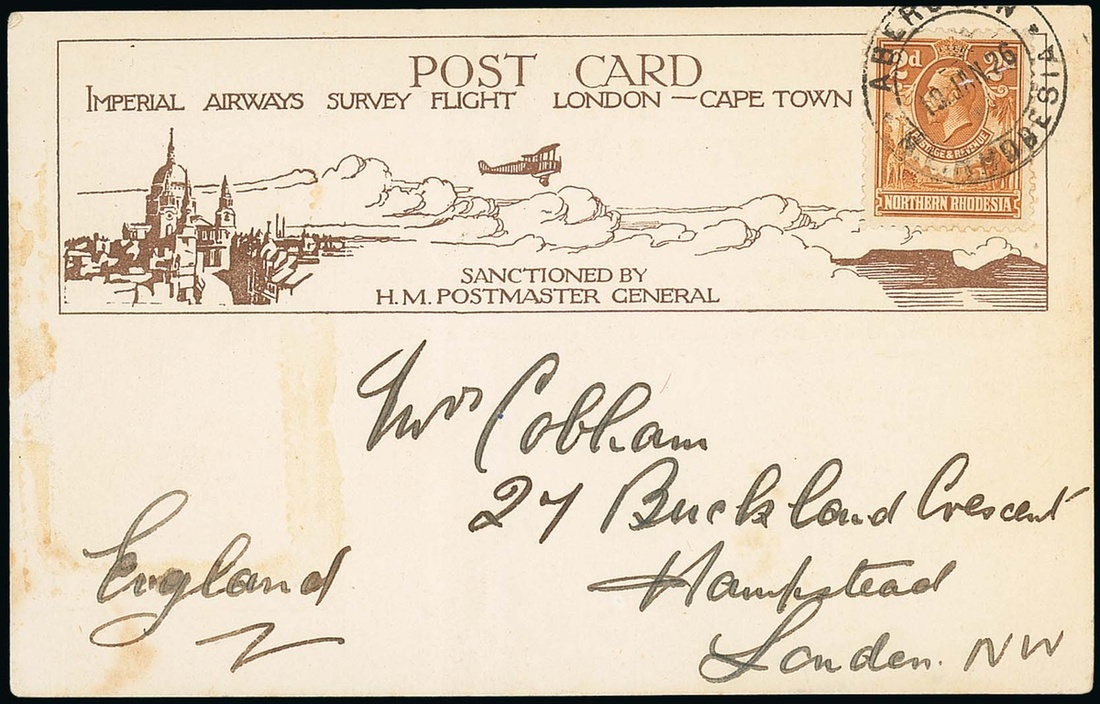 POST CARD
IMPERIAL AIRWAYS SURVEY FLIGHT LONDON—CAPE TOWN
SANCTIONED BY
H.M. POSTMASTER GENERAL
2d 2d
POSTAGE & REVENUE
NORTHERN RHODESIA
19 JAN 26
RHODESIA
Mrs Cobham
27 Buckland Crescent
Hampstead
London. NW
England